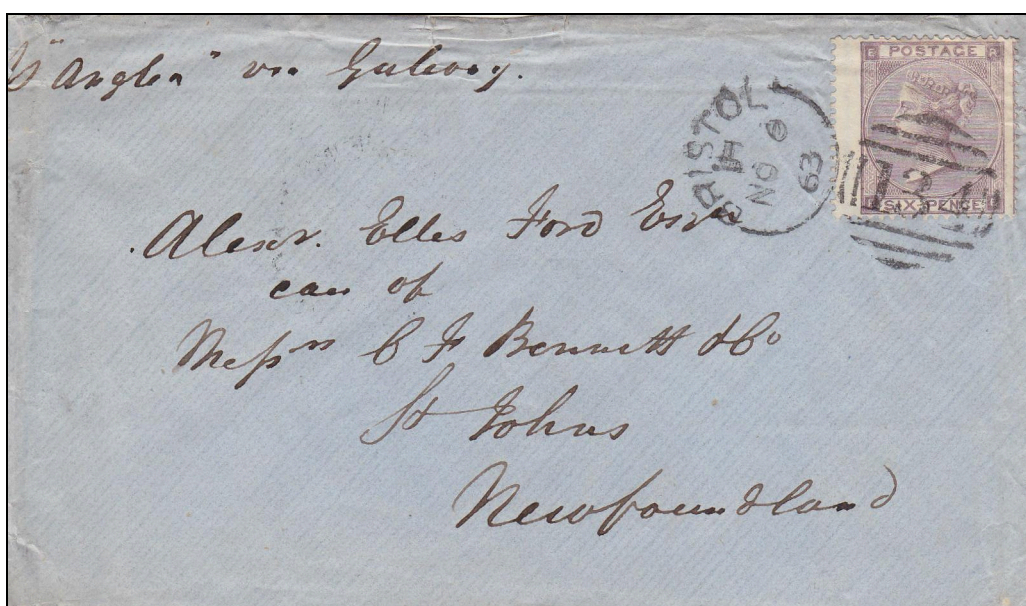 "Anglia" via Galway.
POSTAGE
SIX-PENCE
BRISTOL
H
NO 9
63
134
Alexr. Elles Ford Esqre
care of
Messrs C F Bennett & Co
St Johns
Newfoundland